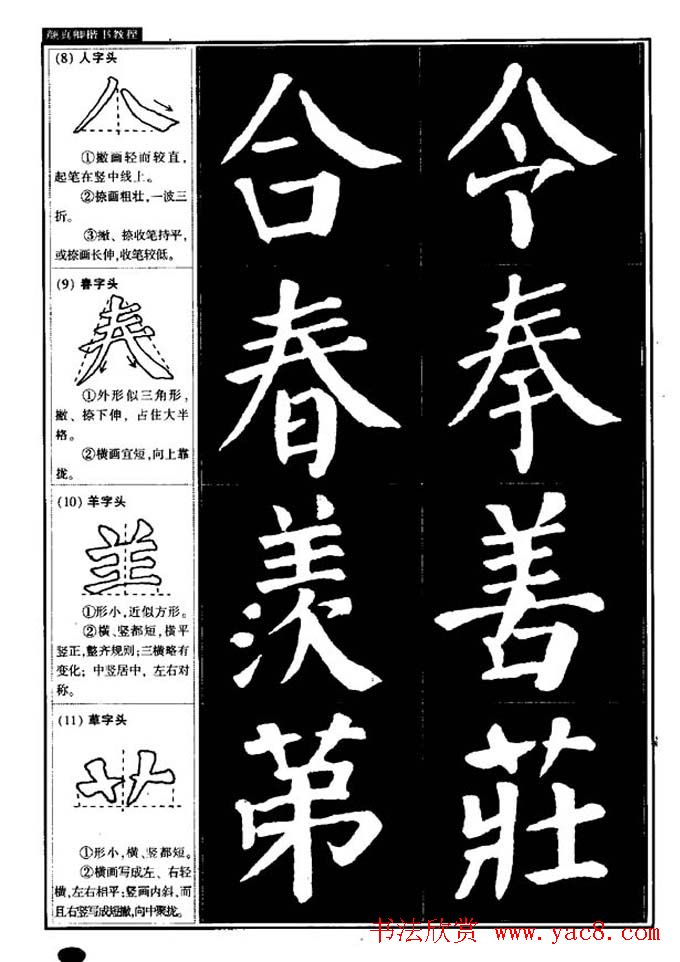 颜真卿楷书教程
(8) 人字头
①撇画轻而较直,
起笔在竖中线上。
②捺画粗壮,一波三
折。
③撇、捺收笔持平,
或捺画长伸,收笔较低。
合 今
(9) 春字头
①外形似三角形,
撇、捺下伸,占住大半
格。
②横画宜短,向上靠
拢。
春 奉
(10) 羊字头
①形小,近似方形。
②横、竖都短,横平
竖正,整齐规则;三横略有
变化;中竖居中,左右对
称。
羨 善
(11) 草字头
①形小,横、竖都短。
②横画写成左、右轻
横,左右相平;竖画内斜,而
且右竖写成短撇,向中聚拢。
苐 莊
书法欣赏 www.yac8.com